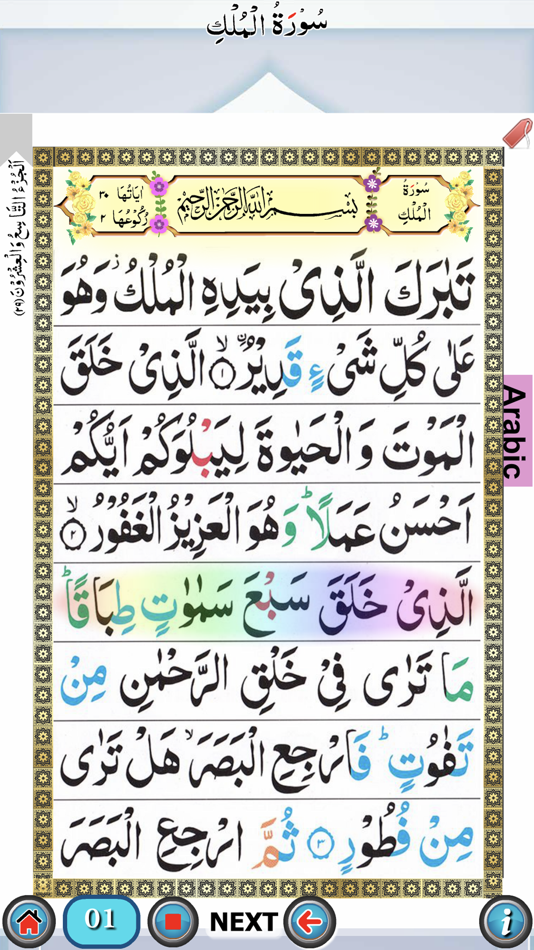 سُوْرَةُ الْمُلْكِ
اَلْجُزْءُ التَّاسِعُ وَالْعِشْرُوْنَ (٢٩)
سُوْرَةُ الْمُلْكِ
بِسْمِ اللّٰهِ الرَّحْمٰنِ الرَّحِيْمِ
اٰيَاتُهَا ٣٠
رُكُوْعُهَا ٢
تَبٰرَكَ الَّذِىْ بِيَدِهِ الْمُلْكُ ز وَهُوَ
عَلٰى كُلِّ شَىْءٍ قَدِيْرُ ۨ ۙ ١ الَّذِىْ خَلَقَ
الْمَوْتَ وَ الْحَيٰوةَ لِيَبْلُوَكُمْ اَيُّكُمْ
اَحْسَنُ عَمَلًا ؕ وَ هُوَ الْعَزِيْزُ الْغَفُوْرُ ۙ ٢
الَّذِىْ خَلَقَ سَبْعَ سَمٰوٰتٍ طِبَاقًا ؕ
مَا تَرٰى فِىْ خَلْقِ الرَّحْمٰنِ مِنْ
تَفٰوُتٍ ؕ فَارْجِعِ الْبَصَرَ ۙ هَلْ تَرٰى
مِنْ فُطُوْرٍ ٣ ثُمَّ ارْجِعِ الْبَصَرَ
Arabic
01
NEXT
i